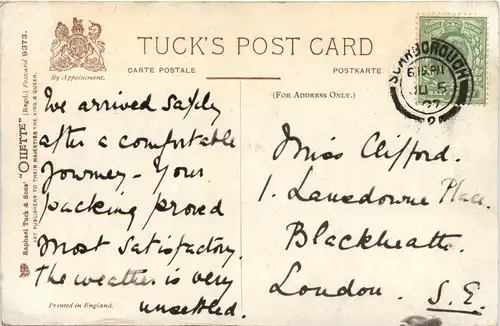 TUCK'S POST CARD
By Appointment.
CARTE POSTALE
POSTKARTE
(FOR ADDRESS ONLY.)
SCARBOROUGH
JU 5
07
2
Raphael Tuck & Sons' "OILETTE" (Regd.) Postcard 9373.
ART PUBLISHERS TO THEIR MAJESTIES THE KING & QUEEN.
We arrived safely
after a comfortable
journey - Your
packing proved
most satisfactory.
The weather is very
unsettled.
Printed in England.
Miss Clifford.
1. Lansdowne Place.
Blackheath.
London. S.E.